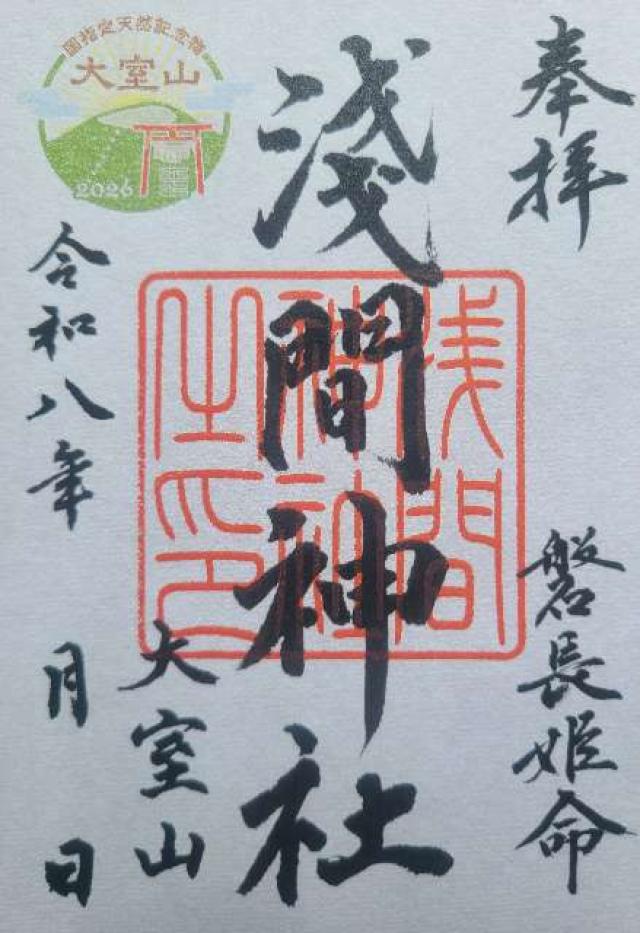 奉拝
磐長姫命
淺間神社
浅間
神社
之印
大室山
令和八年 月 日
国指定天然記念物
大室山
2026